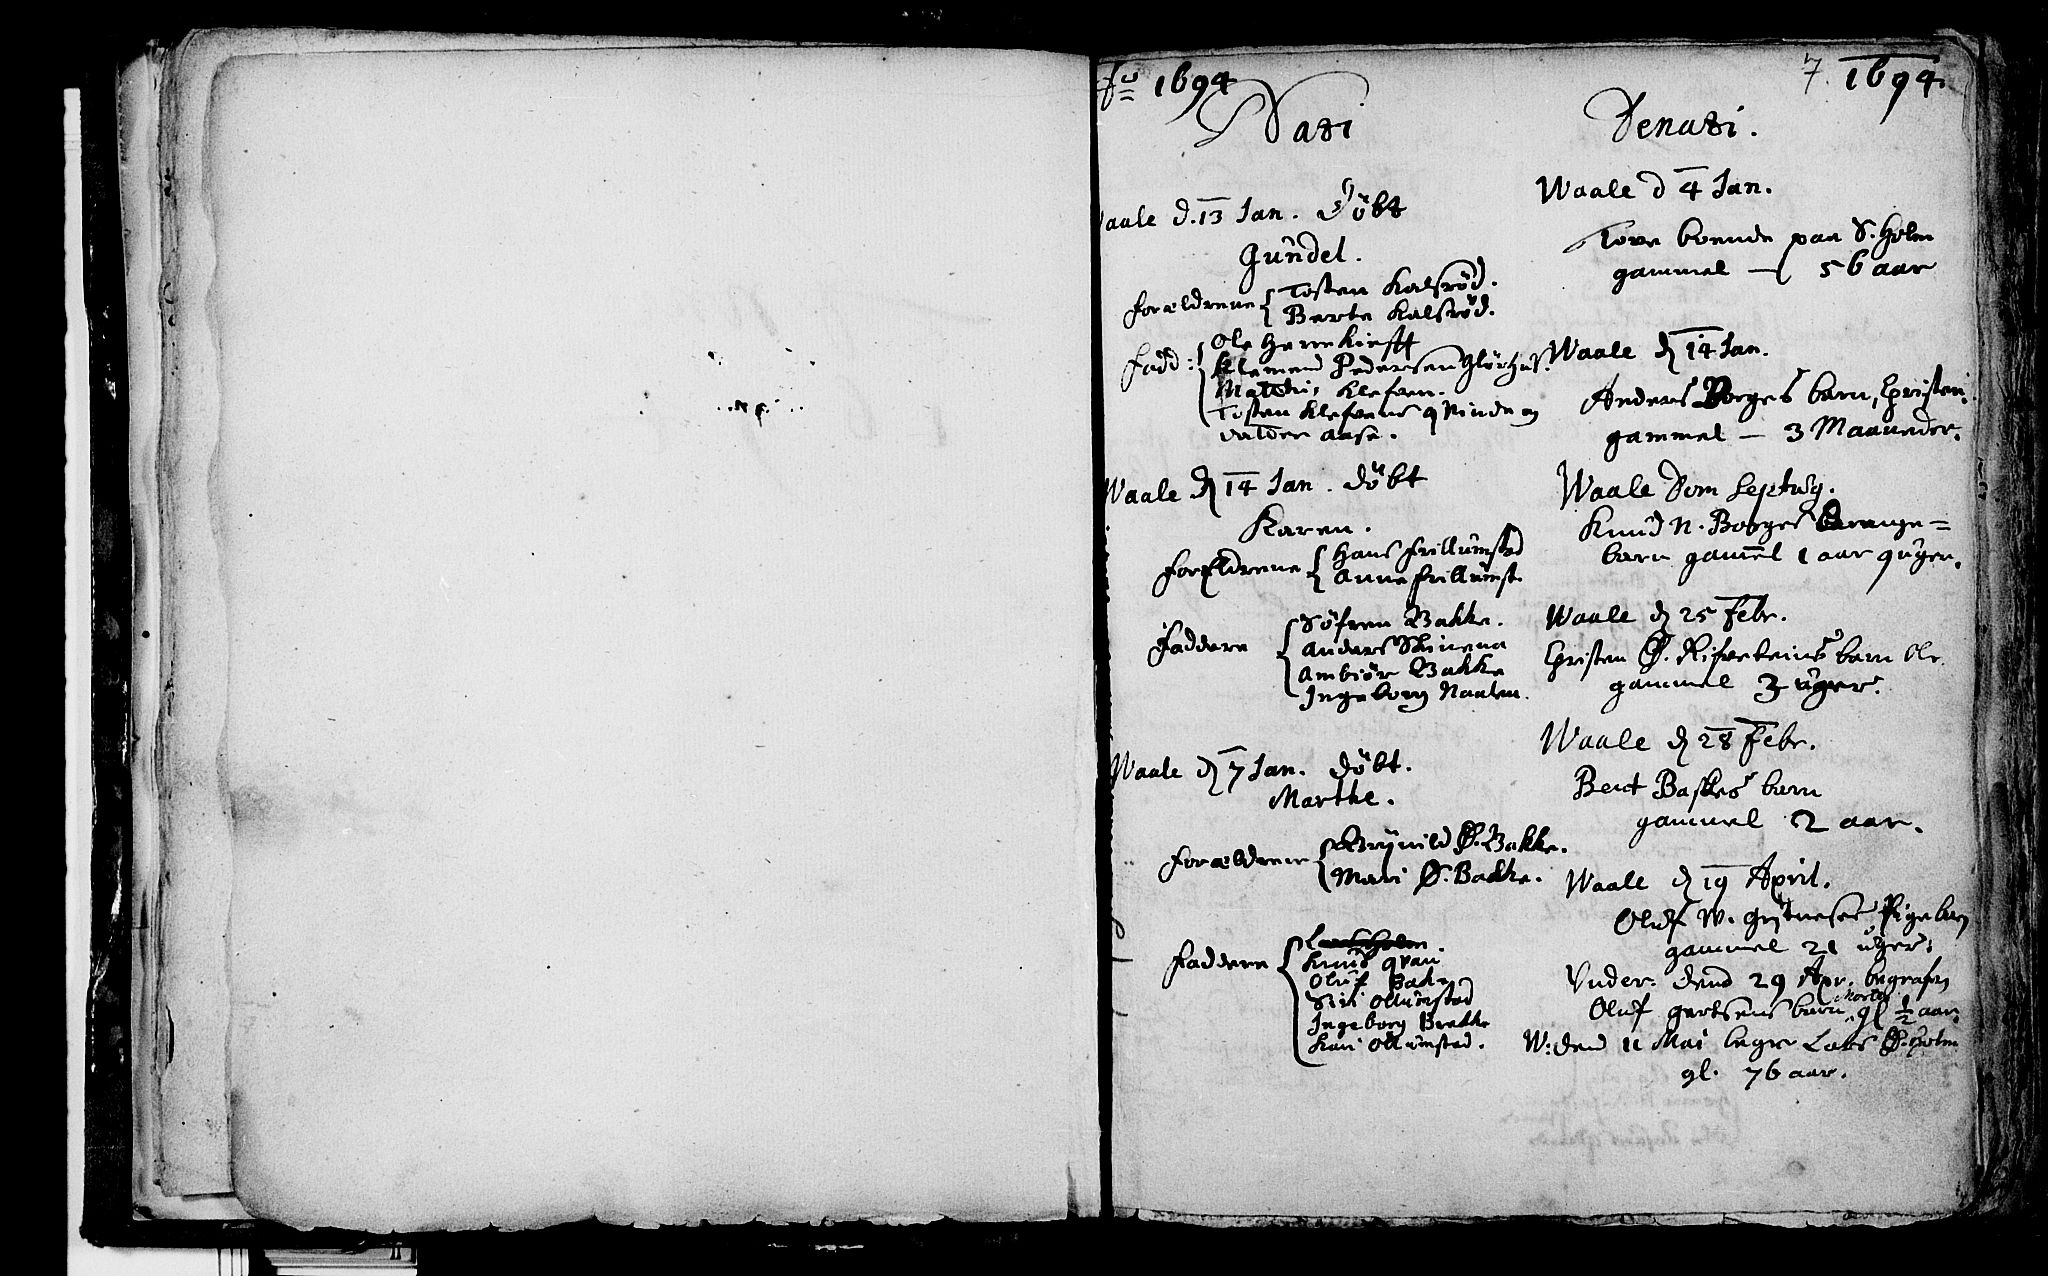 1694
Nati
Waale d. 13 Jan. Döbt
Gundel.
Forældrene { Tosten Kalsröd.
Berte Kalsröd.
Fadd: { Ole
Klemend Pedersen
Matthis Klefven.
Tosten Klefvens qvinde og
Aase.
Waale d 14 Jan. döbt
Karen.
Forældrene { Hans Frillumstad
Anne Frillumst.
Faddere { Söfren Bakke.
Anders
Ambiör Bakke
Ingeborg Naalen.
Waale d 7 Jan. döbt.
Marthe.
Forældrene { Brynild Ø. Bakke.
Mari Ø. Bakke.
Faddere {
Knud qvan
Oluf Bake
Siri Ollumstad
Ingeborg Brekke
Kari Ollumstad.
7. 1694.
Denati.
Waale d 4 Jan.
Tore boende paa S. Holm
gammel — 56 aar
Waale d 14 Jan.
Anders Borges barn, Christen
gammel — 3 Maaneder.
Waale Dom Septug.
Knud N. Borges drenge=
barn gamel 1 aar 9 uger.
Waale d 25 Febr.
Christen Ø. barn Ole
gammel 3 uger.
Waale d 28 Febr.
Bent Baskes barn
gammel 2 aar.
Waale d 19 April.
Oluf W. Pigebarn
gammel 21 uger:
Under: dend 29 Apr. begrafven
Oluf gertsens barn gl ½ aar.
W: dend 11 Mai begr Lars Ø. holm
gl. 76 aar.